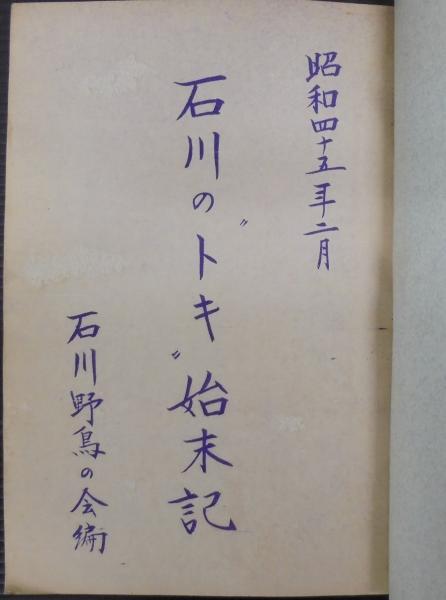 昭和四十五年二月
石川の〝トキ〟始末記
石川野鳥の会編